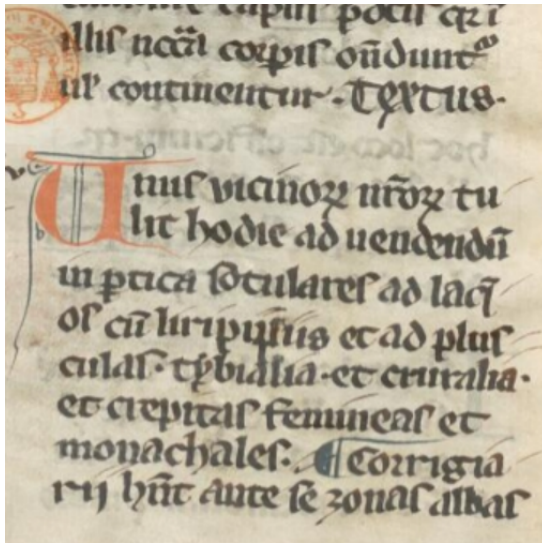 illis nccāl corpis oñdunt᷑
ul' continentur. Textus.
Unus vicinoꝝ nr̄oꝝ tu
lit hodie ad uendendū
in ꝑtica sotulares ad laq̄
os cū liripipijs et ad plus
culas. tybialia. et cruralia.
et crepitas femineas et
monachales. Corrigia
rij hñt ante se zonas albas